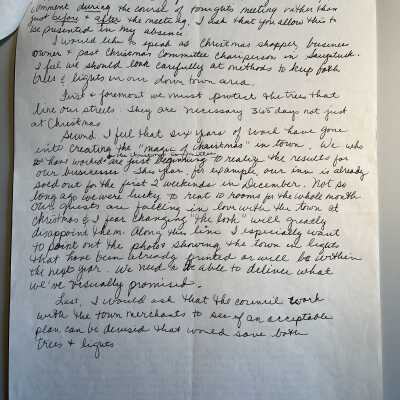 comment during the course of tonights meeting rather than
just before + after the meeting, I ask that you allow this to
be presented in my absence
I would like to speak as Christmas shopper, business
owner + past Christmas Committee Chairperson in Saugatuck.
I feel we should look carefully at methods to keep both
trees + lights in our down town area.
First + foremost we must protect the trees that
line our streets. They are necessary 365 days not just
at Christmas
Second, I feel that six years of work have gone
into creating the "magic of Christmas" in town. We who
on the Christmas committee
have worked are just beginning to realize the results for
our businesses. This year, for example, our inn is already
sold out for the first 2 weekends in December. Not so
long ago we were lucky to rent 10 rooms for the whole month
Our guests are falling in love with the town at
Christmas & I fear changing "the look" will greatly
disappoint them. Along this line I especially want
to point out the photos showing the town in lights
that have been already printed or will be within
the next year. We need to be able to deliver what
we've visually promised.
Last, I would ask that the council work
with the town merchants to see if an acceptable
plan can be devised that would save both
trees + lights